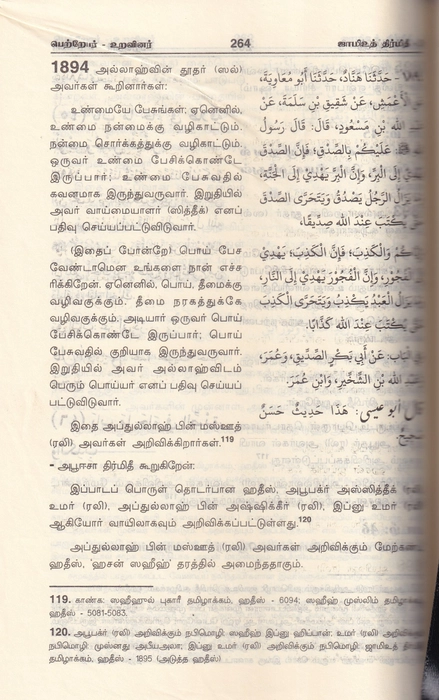 பெற்றோர் - உறவினர் 264 ஜாமிஉத் திர்மிதீ
1894 அல்லாஹ்வின் தூதர் (ஸல்)
அவர்கள் கூறினார்கள்:
உண்மையே பேசுங்கள்; ஏனெனில்,
உண்மை நன்மைக்கு வழிகாட்டும்.
நன்மை சொர்க்கத்துக்கு வழிகாட்டும்.
ஒருவர் உண்மை பேசிக்கொண்டே
இருப்பார்; உண்மை பேசுவதில்
கவனமாக இருந்துவருவார். இறுதியில்
அவர் வாய்மையாளர் (ஸித்தீக்) எனப்
பதிவு செய்யப்பட்டுவிடுவார்.
(இதைப் போன்றே) பொய் பேச
வேண்டாமென உங்களை நான் எச்ச
ரிக்கிறேன். ஏனெனில், பொய், தீமைக்கு
வழிவகுக்கும். தீமை நரகத்துக்கே
வழிவகுக்கும். அடியார் ஒருவர் பொய்
பேசிக்கொண்டே இருப்பார்; பொய்
பேசுவதில் குறியாக இருந்துவருவார்.
இறுதியில் அவர் அல்லாஹ்விடம்
பெரும் பொய்யர் எனப் பதிவு செய்யப்
பட்டுவிடுவார்.
இதை அப்துல்லாஹ் பின் மஸ்ஊத்
(ரலி) அவர்கள் அறிவிக்கிறார்கள்.119
حَدَّثَنَا هَنَّادٌ، حَدَّثَنَا أَبُو مُعَاوِيَةَ،
الْأَعْمَشِ، عَنْ شَقِيقِ بْنِ سَلَمَةَ، عَنْ
الله بْنِ مَسْعُودٍ، قَالَ: قَالَ رَسُولُ
عَلَيْكُمْ بِالصِّدْقِ؛ فَإِنَّ الصِّدْقَ
إِلَى الْبِرِّ، وَإِنَّ الْبِرَّ يَهْدِي إِلَى الْجَنَّةِ،
الرَّجُلُ يَصْدُقُ وَيَتَحَرَّى الصِّدْقَ
يُكْتَبَ عِنْدَ الله صِدِّيقًا،
وَالْكَذِبَ؛ فَإِنَّ الْكَذِبَ يَهْدِي
الْفُجُورِ، وَإِنَّ الْفُجُورَ يَهْدِي إِلَى النَّارِ،
الْعَبْدُ يَكْذِبُ وَيَتَحَرَّى الْكَذِبَ
يُكْتَبَ عِنْدَ الله كَذَّابًا.
عَنْ أَبِي بَكْرٍ الصِّدِّيقِ، وَعُمَرَ،
الله بْنِ الشِّخِّيرِ، وَابْنِ عُمَرَ.
أبو عيسى: هَذَا حَدِيثٌ حَسَنٌ
- அபூஈசா திர்மிதீ கூறுகிறேன்:
இப்பாடப் பொருள் தொடர்பான ஹதீஸ், அபூபக்ர் அஸ்ஸித்தீக்
உமர் (ரலி), அப்துல்லாஹ் பின் அஷ்ஷிக்கீர் (ரலி), இப்னு உமர்
ஆகியோர் வாயிலாகவும் அறிவிக்கப்பட்டுள்ளது.120
அப்துல்லாஹ் பின் மஸ்ஊத் (ரலி) அவர்கள் அறிவிக்கும்
ஹதீஸ், 'ஹசன் ஸஹீஹ்' தரத்தில் அமைந்ததாகும்.
119. காண்க: ஸஹீஹுல் புகாரீ தமிழாக்கம், ஹதீஸ் - 6094; ஸஹீஹ் முஸ்லிம்
ஹதீஸ் - 5081-5083.
120. அபூபக்ர் (ரலி) அறிவிக்கும் நபிமொழி: ஸஹீஹ் இப்னு ஹிப்பான்; உமர் (ரலி)
நபிமொழி: முஸ்னது அபீயஅலா; இப்னு உமர் (ரலி) அறிவிக்கும் நபிமொழி: ஜாமிஉத்
தமிழாக்கம், ஹதீஸ் - 1895 (அடுத்த ஹதீஸ்)